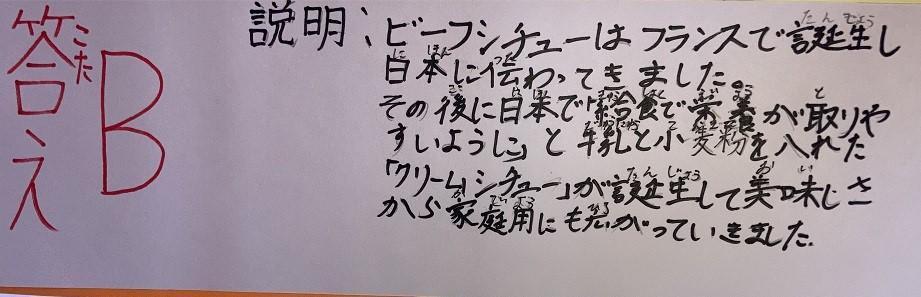 答え
こた
B
説明:ビーフシチューはフランスで誕生し
日本に伝わってきました。
その後に日本で「給食で栄養が取りや
すいように」と牛乳と小麦粉を入れた
「クリームシチュー」が誕生して美味しさ
から家庭用にも広がっていきました。